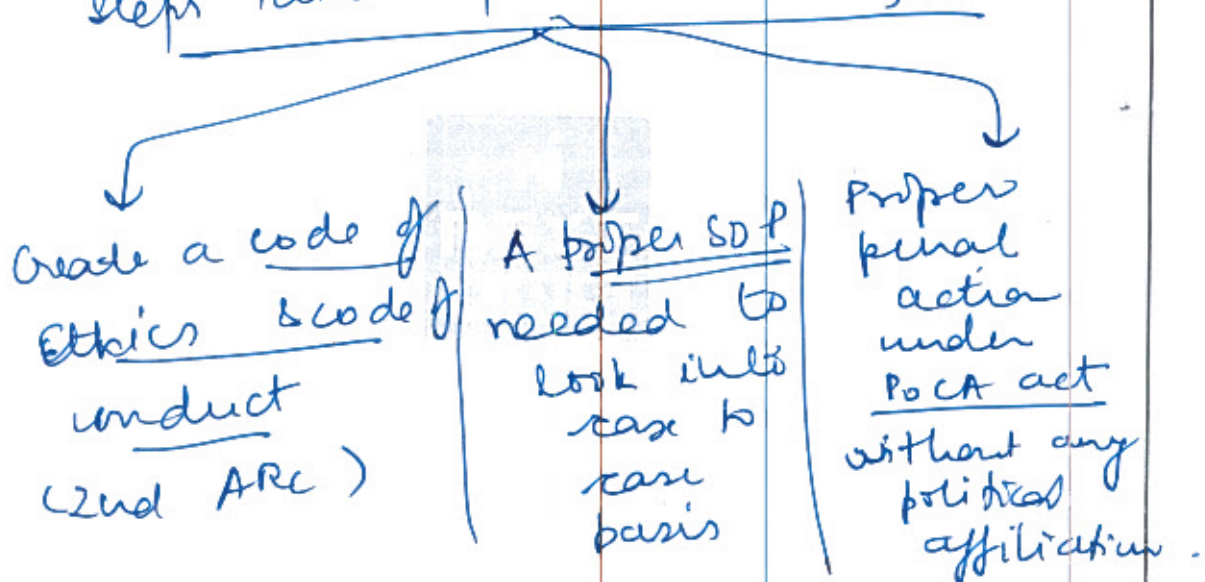 Steps
Create a code of
Ethics & code of
conduct
(2nd ARC)
A proper SOP
needed to
look into
case to
case
basis
Proper
penal
action
under
PoCA act
without any
political
affiliation.